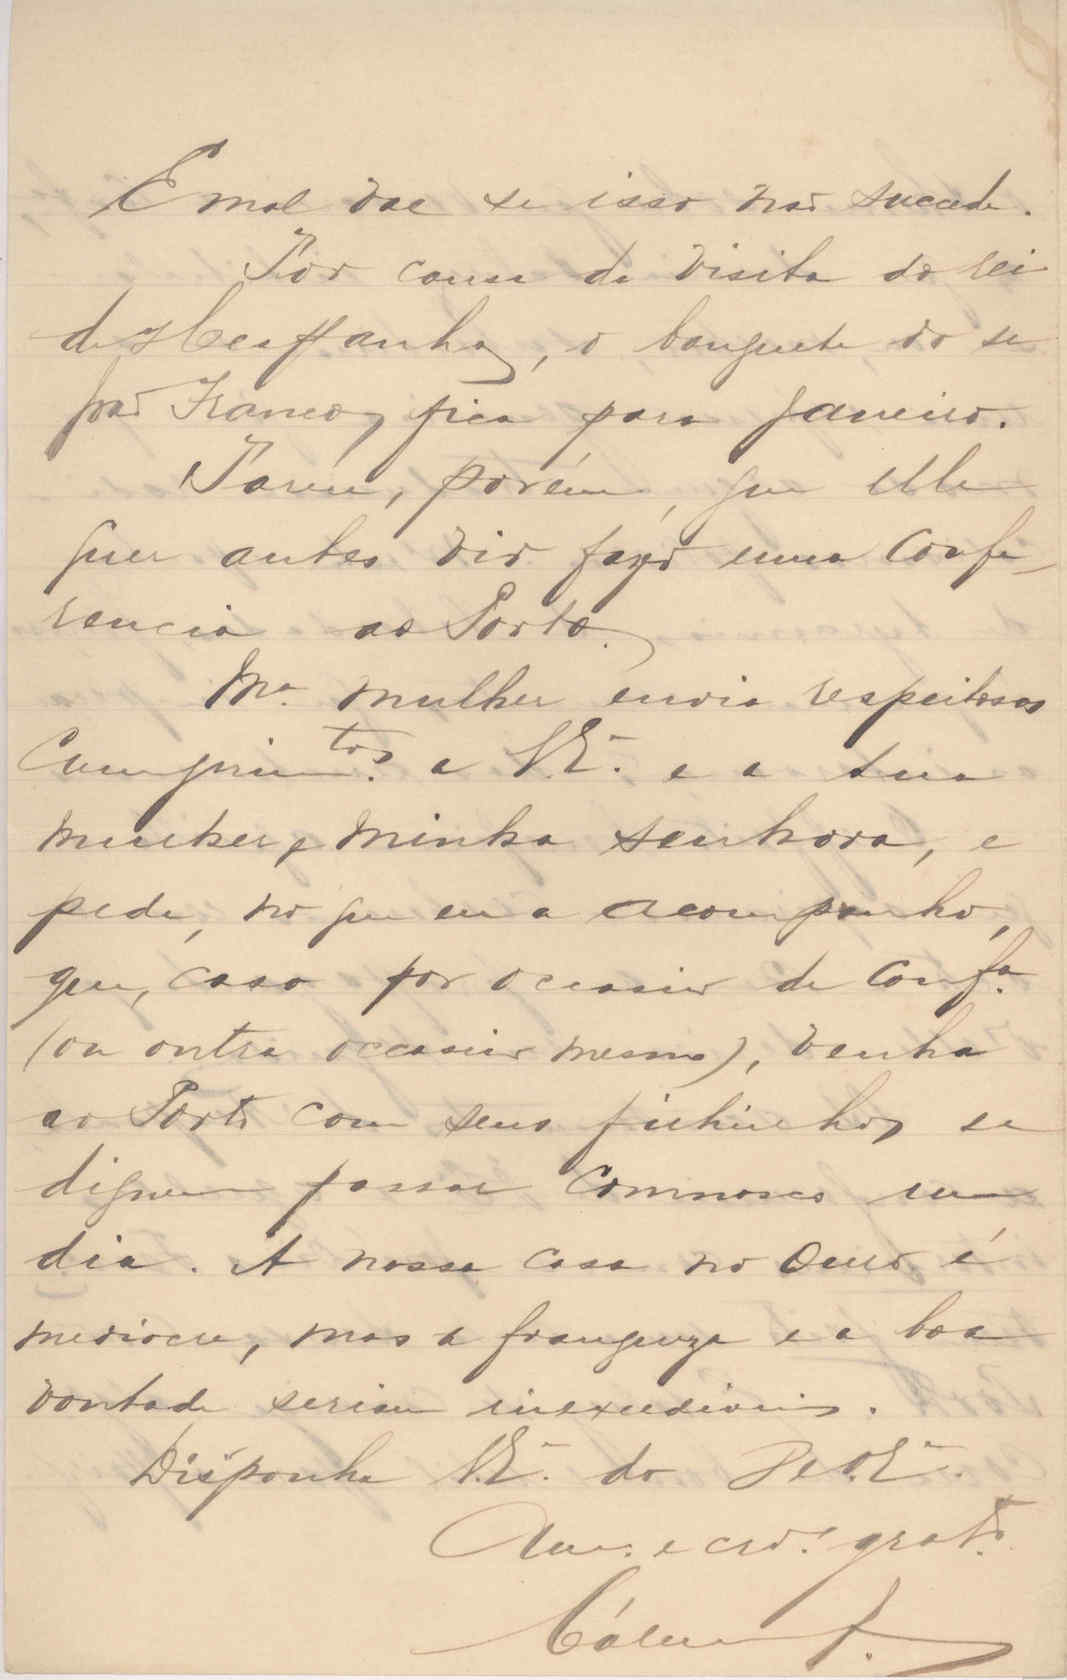 E mal vae se isso não succede.
Por causa da visita do rei
de Hespanha, o banquete do sr
João Franco, fica para Janeiro.
Parece, porém, que elle
quer antes vir fazer uma Confe-
rencia ao Porto.
Mª mulher envia respeitosos
Cumprimtos. a V.Eª. e a sua
mulher, minha senhora, e
pede, no que eu a acompanho,
que, caso por occasião da Confª.
(ou outra occasião mesmo), venha
ao Porto com seus filhinhos se
dignem passar comnosco um
dia. A nossa casa no Ouro é
mediocre, mas a franqueza e a boa
vontade seriam inexcediveis.
Disponha V.Eª. do De V.Eª.
Amº. e crdº. gratº.